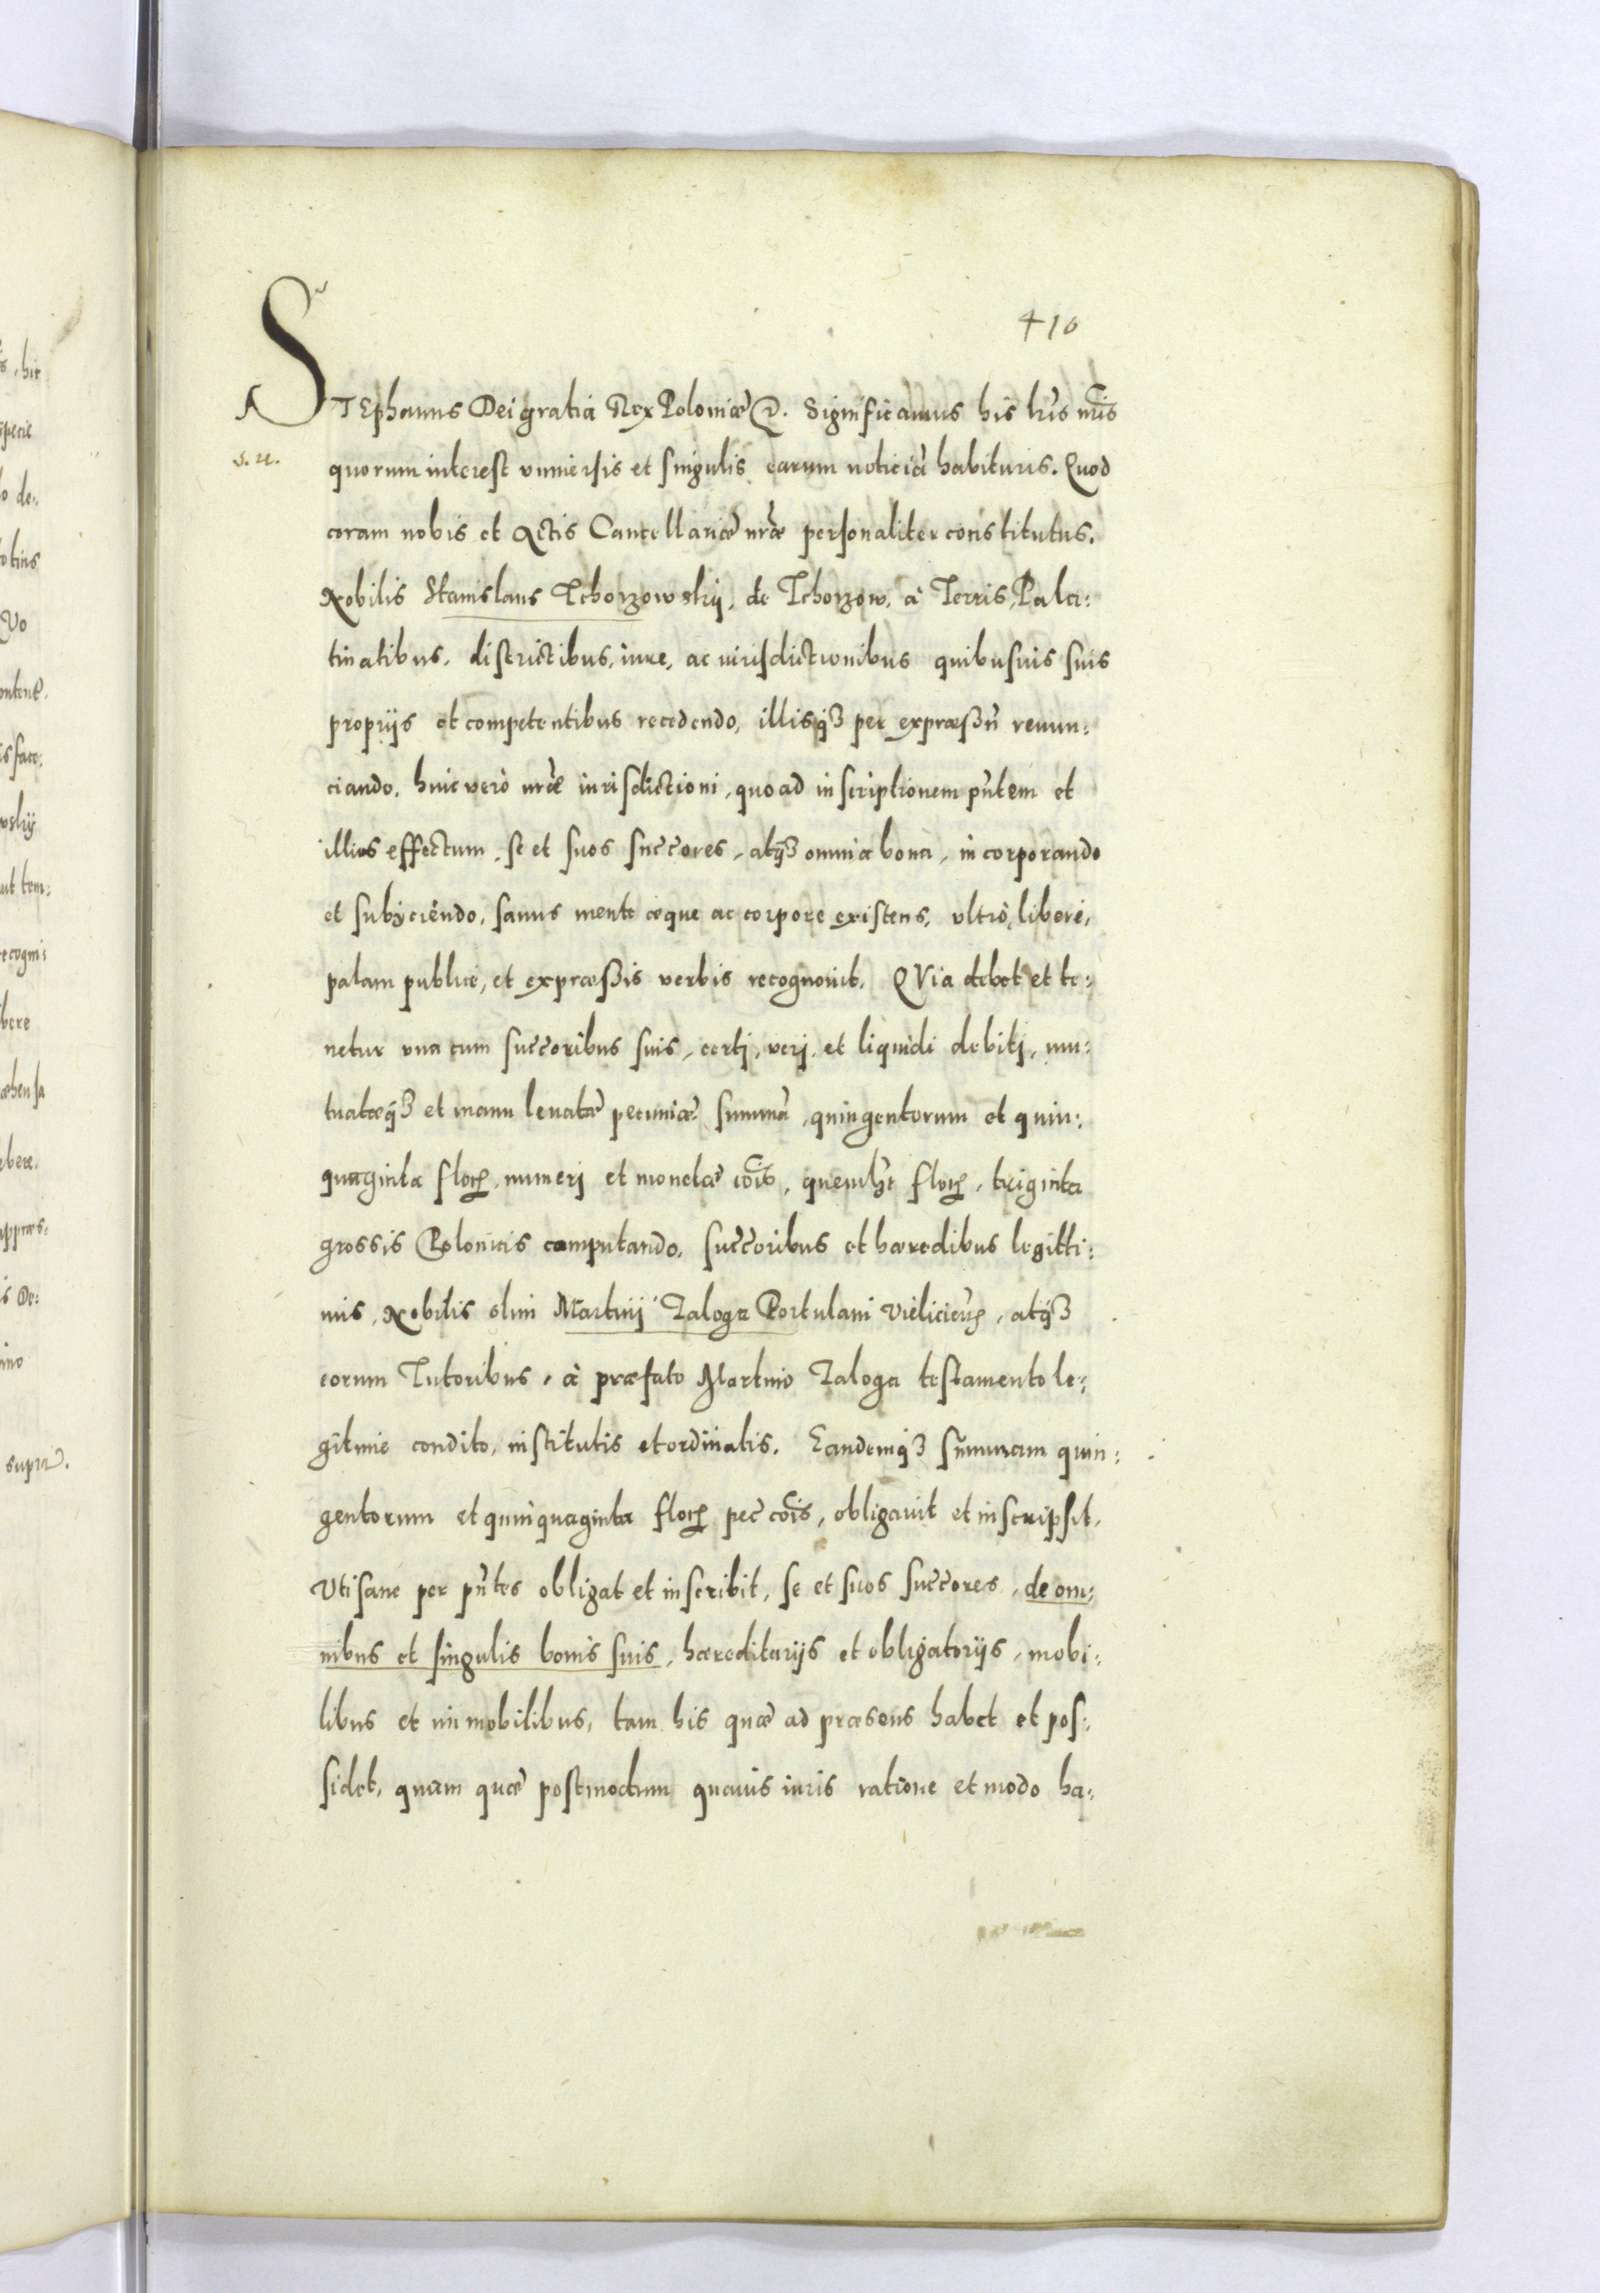 410
STEphanus Dei gratia Rex Poloniæ &. Significamus his lr̃is nr̃is
s. u.
quorum interest vniuersis et singulis earum noticiã habituris. Quod
coram nobis et Actis Cancellariæ nr̃æ personaliter constitutus.
Nobilis Stanislaus Tchorzowskij, de Tchorzow, à Terris, Pala:
tinatibus, districtibus, iure, ac iurisdictionibus quibusuis suis
proprijs et competentibus recedendo, illisqȝ per expræßũ renun:
ciando, huic verò nr̃æ iurisdictioni, quo ad inscriptionem pñtem et
illius effectum, se et suos succ̃ores, atqȝ omnia bona, incorporando
et subijciendo, sanus mente æque ac corpore existens, vltrò, liberè,
palam publicè, et expræßis verbis recognouit. QVia debet et te:
netur vna cum succ̃oribus suis, certj, verj, et liquidi debitj, mu:
tuatæqȝ et manu leuatæ pecuniæ summã, quingentorum et quin:
quaginta floꝝ, numerj et monetæ cõis, quemlꝫt floꝝ, triginta
grossis Polonicis computando, succ̃oribus et hæredibus legitti:
mis, Nobilis olim Martinj Taloga Portulani Vieliciensꝝ, atqȝ
eorum Tutoribus, à præfato Martino Taloga testamento le:
gitime condito, institutis et ordinatis. Eandemqȝ summam quin:
gentorum et quinquaginta floꝝ pec̃ cõis, obligauit et inscripsit,
Vti sane per pñtes obligat et inscribit, se et suos succ̃ores, de om:
nibus et singulis bonis suis, hæreditarijs et obligatorijs, mobi:
libus et immobilibus, tam his quæ ad præsens habet et pos:
sidet, quam quæ postmodum quauis iuris ratione et modo ha: